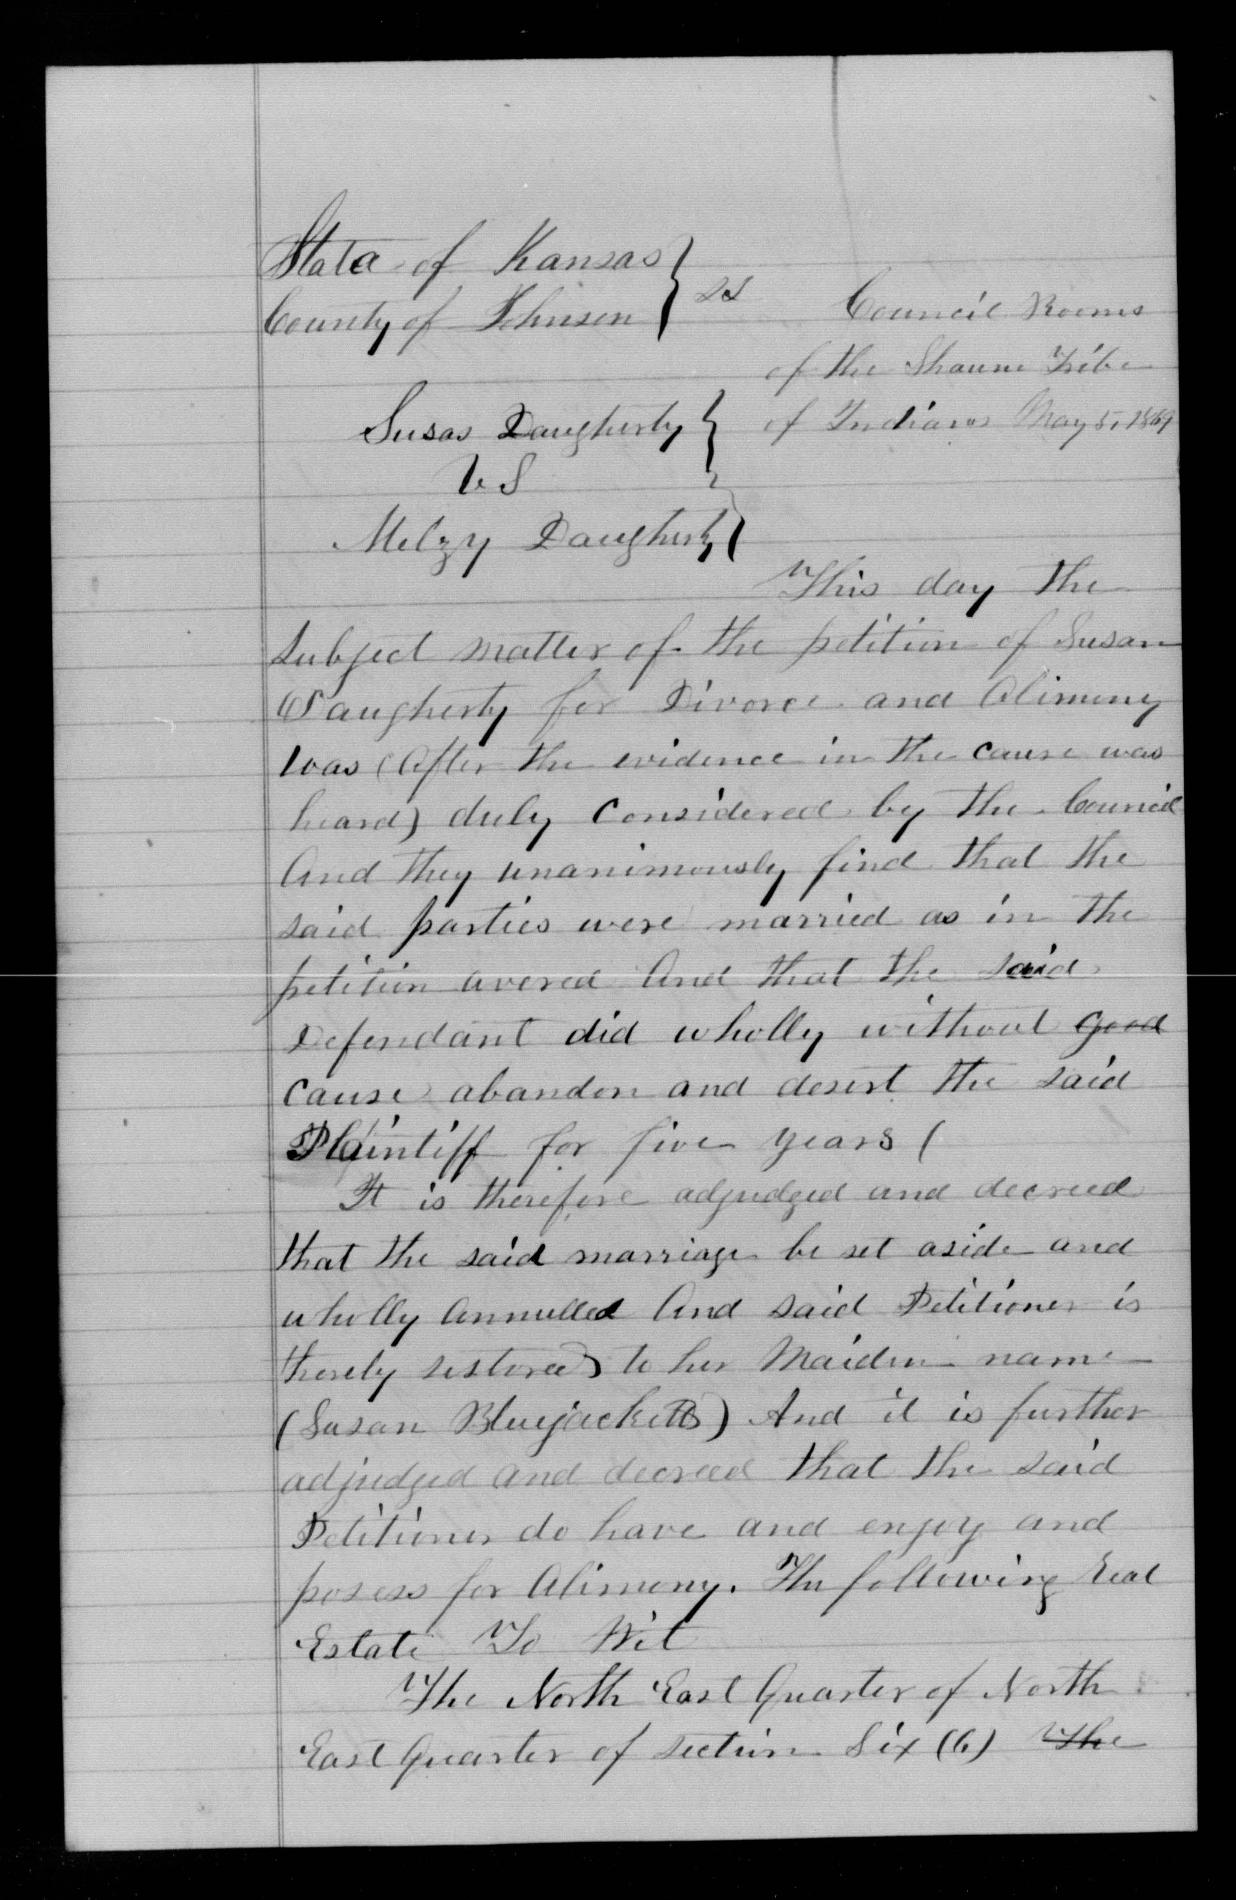 State of Kansas
County of Johnson } SS
Council Rooms
of the Shaune Tribe
of Indians May 5, 1869
Susas Daugherty
VS
Melzy Daugherty
This day the
subject matter of the petition of Susan
Daugherty for Divorce and Alimony
was (After the evidence in the cause was
heard) duly Considered by the Council
And they unanimously find that the
said parties were married as in the
petition avered And that the said
Defendant did wholly without good
cause abandon and desert the said
Plaintiff for five years (
It is therefore adjudged and decreed
that the said marriage be set aside and
wholly Annulled And said Petitioner is
thereby restored to her Maiden name
(Susan Bluejackett) And it is further
adjudged and decreed that the said
Petitioner do have and enjoy and
posess for Alimony. The following Real
Estate To Wit
The North East Quarter of North
East Quarter of section Six (6) The